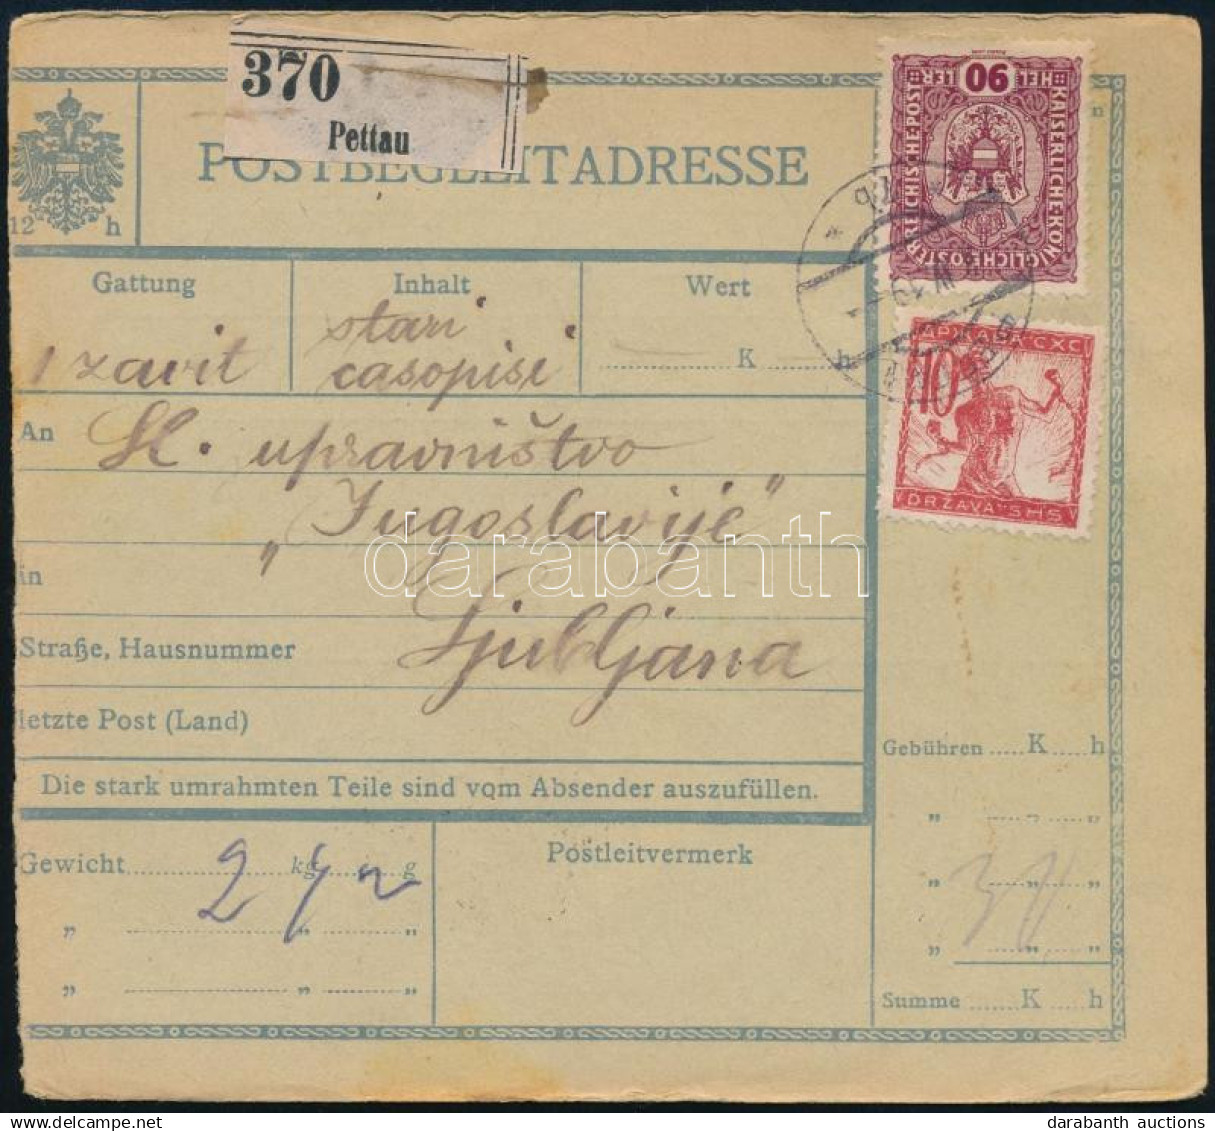 370
Pettau
POSTBEGLEITADRESSE
12 h
Gattung
Inhalt
Wert
1 zavit
stari
casopisi
K h
An
Sl. upravništvo
"Jugoslavije"
in
Ljubljana
Straße, Hausnummer
letzte Post (Land)
Die stark umrahmten Teile sind vom Absender auszufüllen.
Gewicht kg g
2 1/2
" " "
" " "
Postleitvermerk
Gebühren K h
" " "
" " "
" " "
Summe K h
KAISERLICHE·KÖNIGLICHE·ÖSTERREICHISCHE·POST
90
HELLER
10
DRŽAVA SHS
darabanth
darabanth auctions